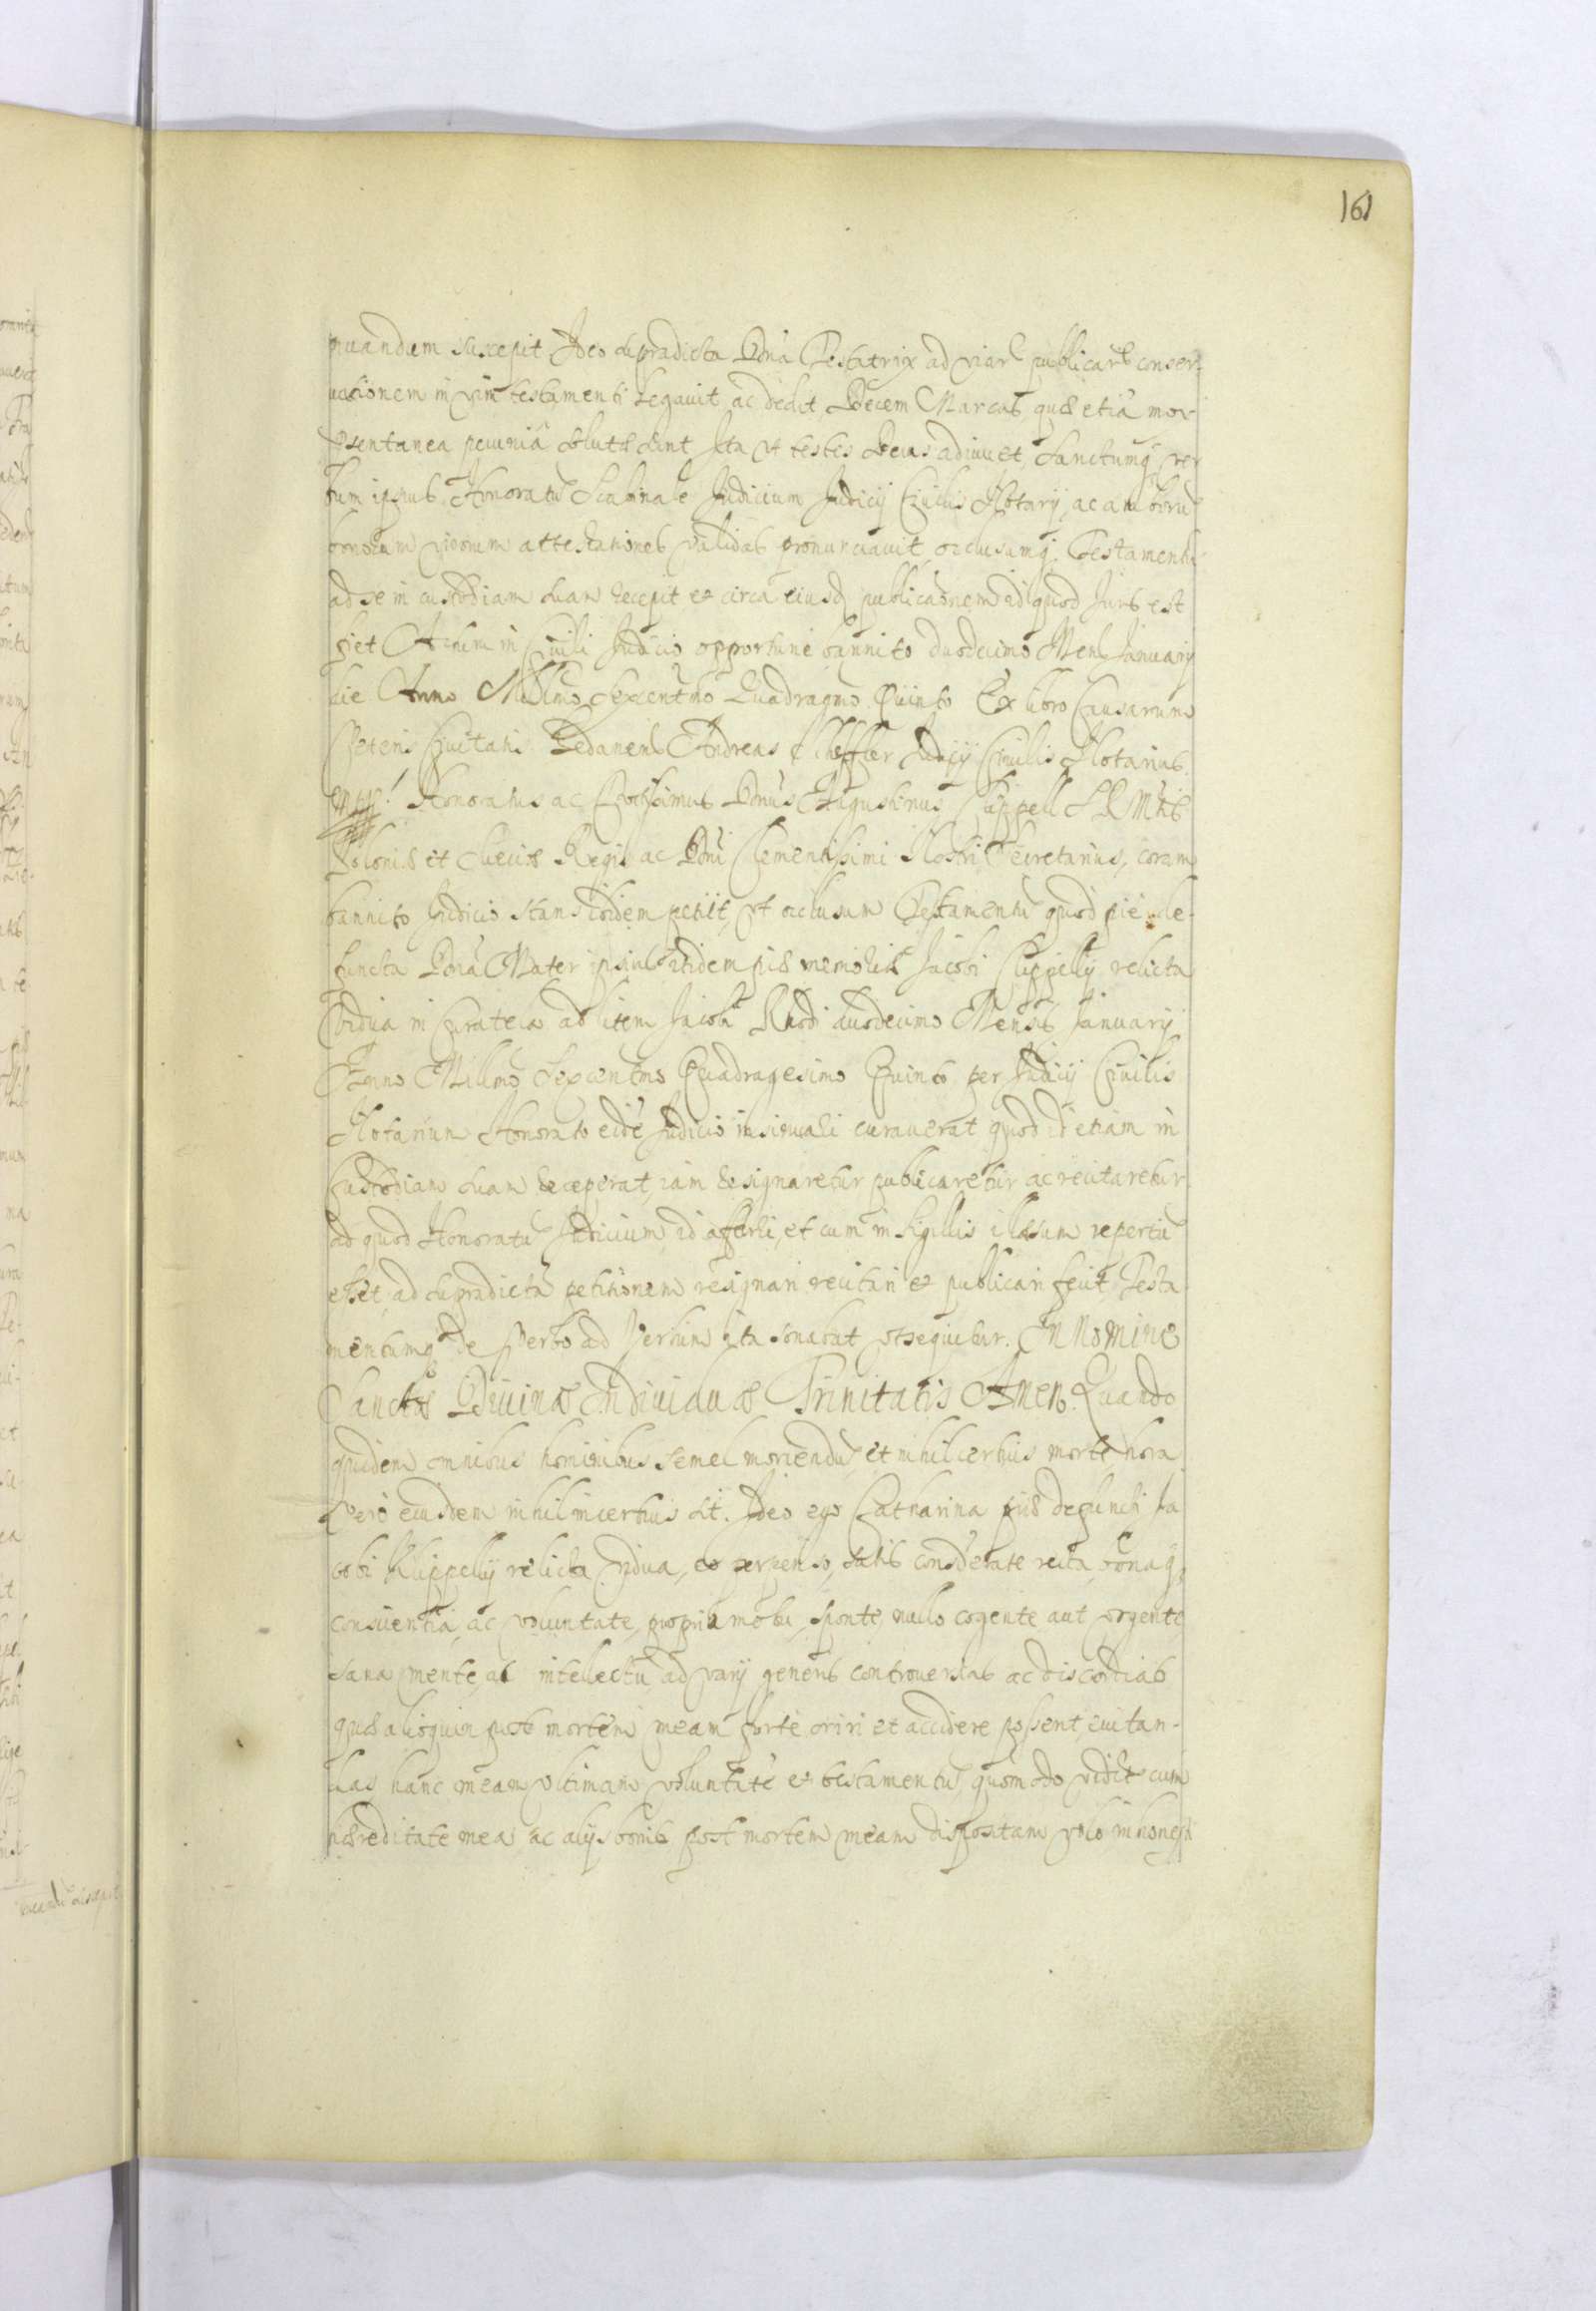 161
quandum suscepit Ideo supradicta Dna Testatrix ad viarū publicarū conser-
uationem in vim testamenti Legauit ac dedit Decem Marcas, quæ etiã mor-
sentanea pecuniâ solutæ sunt Ita vt testes Deus adiuuet, Sanctumq ver
bum ipsius. Honoratū Scabinale Iudicium Iudicij Ciuilis Notarij, ac amborū
bonorum virorum attestationes validas pronunciauit, occlusumq Testamentū
ad se in custodiam suam recepit et circa eiusd publicaonem id quod Juris est
fiet Actum in Ciuili Iudicio opportunè bannito duodecimo Mens Januarij
die Anno Millmo Sexcentmo Quadragmo Quinto Ex libro Causarum
Veteris Ciuitatis Gedanens Andreas Scheffler Iudicij Ciuilis Notarius
Honoratus ac Dnus Augustinus Clippell S R Mtis
Poloniæ et Sueciæ Regis ac Dni Clementissimi Nostri Secretarius, coram
bannito Iudicio stans ibidem petijt, vt occlusum Testamentū quod piè de-
functa Dna Mater ipsius itidem piæ memoriæ Jacobi Clippellij relicta
Vidua in Curatela ad litem Jacobi Rhodi duodecimo Mensis Januarij
Anno Millmo Sexcentmo Quadragesimo Quinto per Iudicij Ciuilis
Notarium Honorato eidē Iudicio insinuali curauerat, quod id etiam in
Custodiam suam receperat, iam resignaretur publicaretur ac recitaretur
ad quod Honoratū Iudicium id afferri, et cum in Sigillis illæsum repertū
esset, ad supradictã petitionem resignari recitari et publicari fecit, Testa
mentumq de Verbo ad Verbum ita sonabat vt sequitur. In Nomine
Sanctæ Diuinæ Indiuiduæ Trinitatis Amen. Quando
quidem omnibus hominibus semel moriendū, et nihil certius morte hora
verò eiusdem nihil incertius sit. Ideo ego Catharina piè defuncti Ja
cobi Klippellij relicta vidua, eo perpenso, satis considerate recta bonaq
conscientiâ, ac voluntate, proprio motu, sponte, nullo cogente aut vrgente,
sana mente, ac intellectu, ad varij generis controuersias ac discordias
quæ alioquin post mortem meam fortè oriri et accidere possent, euitan-
das hanc meam vltimam voluntatē et testamentū, quomodo videlt cum
hæreditate mea, ac alijs bonis post mortem meam dispositam volo in honestâ